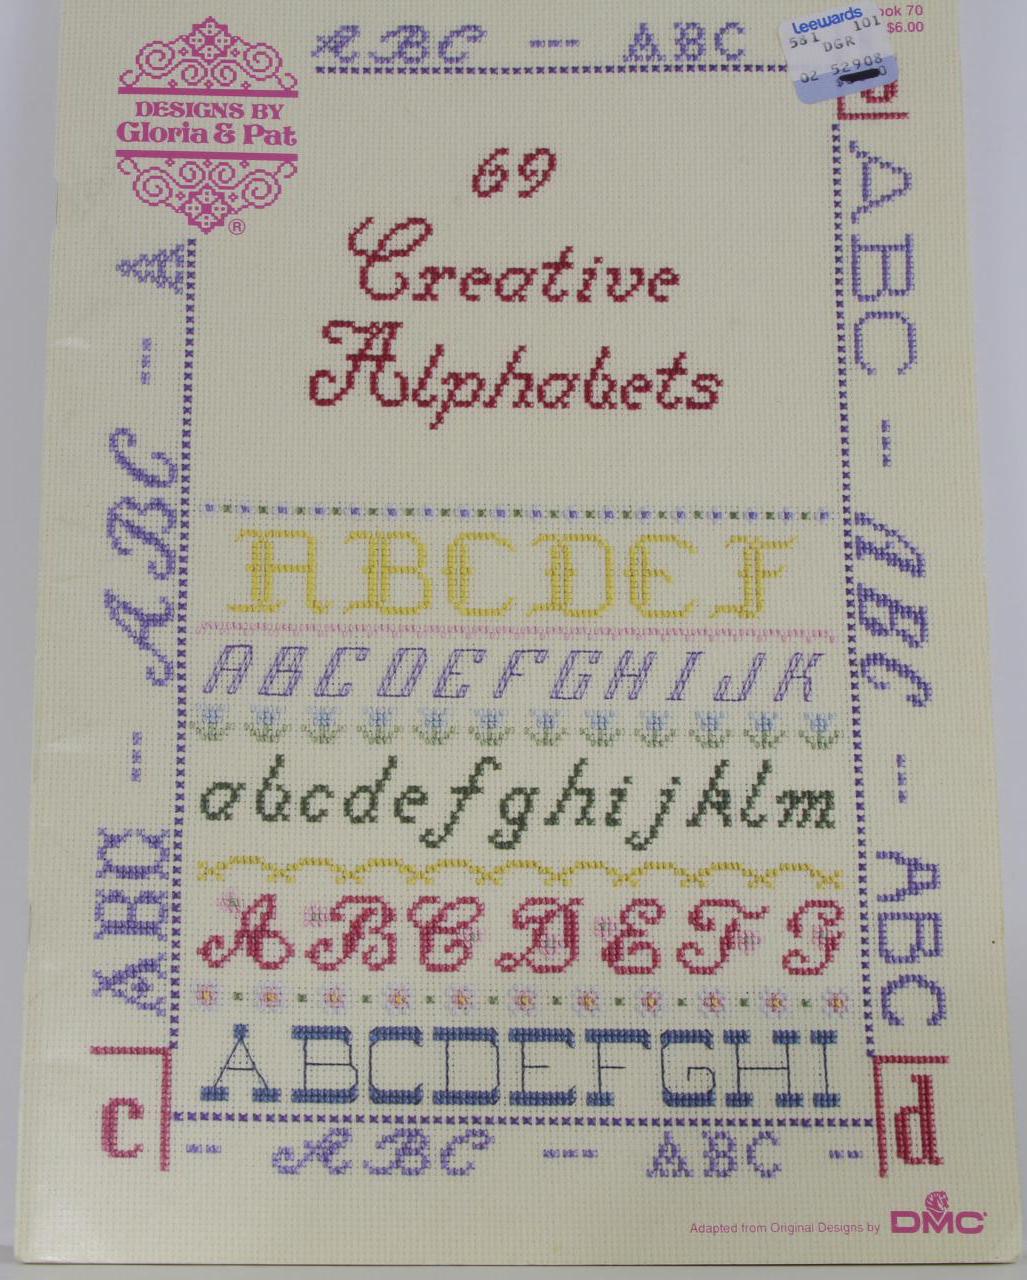 DESIGNS BY
Gloria & Pat
®
ABC -- ABC
Leewards
581 101
DGR
02 52908
ook 70
$6.00
69
Creative
Alphabets
ABC --- ABC --- A
ABC --- ABC --- ABC
ABCDEF
ABCDEFGHIJK
abcdefghijklm
ABCDEFG
ABCDEFGHI
c
d
-- ABC --- ABC --
Adapted from Original Designs by DMC